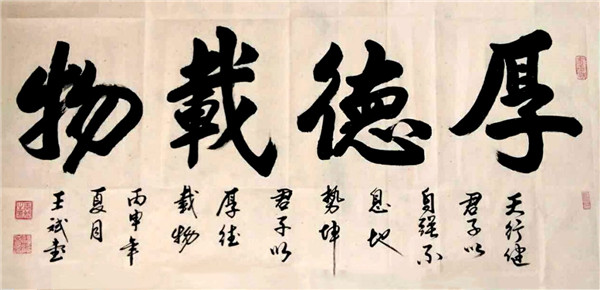 厚德載物
天行健
君子以
自强不
息地
勢坤
君子以
厚德
載物
丙申年
夏月
王